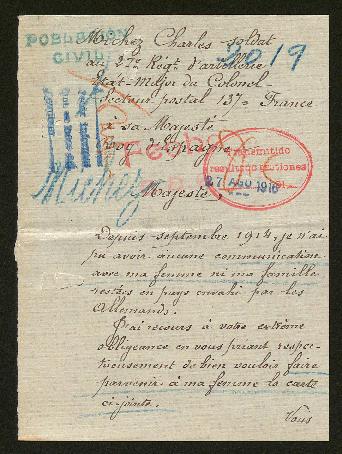 Michez Charles soldat
POBLACION
CIVIL
au 27e Régt d'artillerie
2019
Etat-Major du Colonel
Secteur postal 137. France
à sa Majesté
roy d'Espagne
27 AGO 1916
Michez
Majesté,
Depuis septembre 1914, je n'ai
pu avoir aucune communication
avec ma femme ni ma famille
restées en pays envahi par les
Allemands.
J'ai recours à votre extrême
obligeance en vous priant respec-
tueusement de bien vouloir faire
parvenir à ma femme la carte
ci-jointe.
Vous